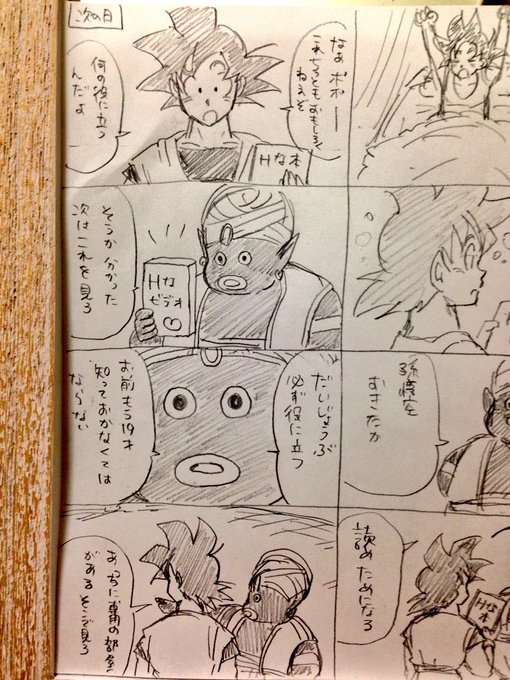 孫悟空
おきたか
読め ためになる
Hな
本
次の日
なぁポポー
これちっともおもしろく
ねえぞ
Hな本
何の役に立つ
んだよ
そうか 分かった
次はこれを見ろ
Hな
ビデオ
だいじょうぶ
必ず役に立つ
お前もう19才
知っておかなくては
ならない
あっちに専用の部屋
がある そこで見ろ